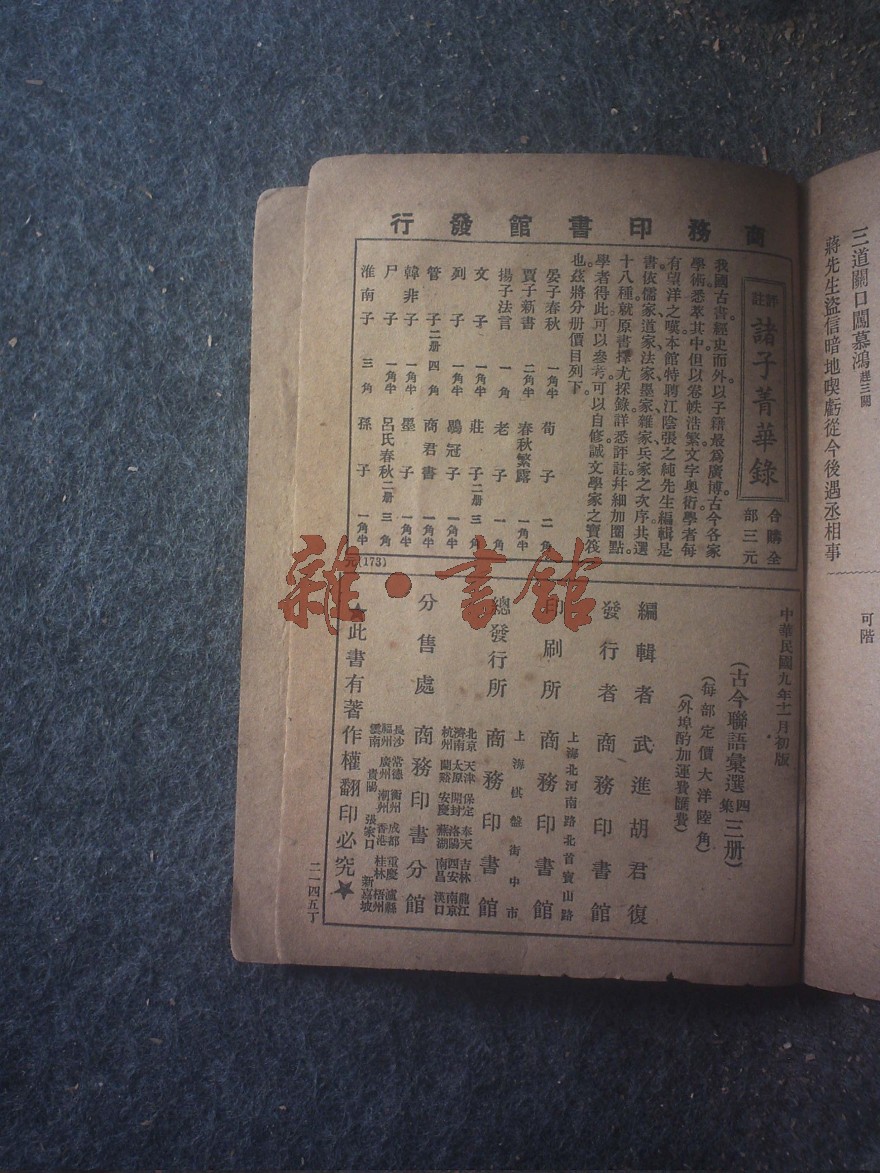 三道關口闖慕鴻趕三關
蔣先生盜信暗地喫虧從今後遇丞相事
可階
商務印書館發行
評註
諸子菁華錄
合購全部三元
我國古書經史而外以子籍最爲廣博古今各家
學術悉萃其中但以卷帙浩繁文字奧衍學者每
有望洋之嘆本館特聘江陰張之純先生編輯是
書依儒家道家法家墨家雜家兵家之次序共選
十八種就原書擇尤採錄詳悉評註幷細加圈點
學者得此可以參考可以自修誠文學家之寶筏
也茲將分册價目列下
晏子春秋 一角半 荀子 二角
賈子新書 二角半 春秋繁露 一角半
揚子法言 一角 老子 一角
文子 一角半 莊子二册 三角
列子 一角半 鶡冠子 一角半
管子二册 四角 商君書 一角半
韓非子 一角半 墨子 一角半
尸子 一角半 呂氏春秋二册 三角
淮南子 三角 孫子 一角半
元(173)
中華民國九年十一月初版
(古今聯語彙選四集三册)
(每部定價大洋陸角)
(外埠酌加運費匯費)
編輯者 武進胡君復
發行者 商務印書館
上海北河南路北首寶山路
印刷所 商務印書館
上海棋盤街中市
總發行所 商務印書館
北京 天津 保定 奉天 吉林 龍江
濟南 太原 開封 洛陽 西安 南京
杭州 蘭谿 安慶 蕪湖 南昌 漢口
分售處 商務印書分館
長沙 常德 衡州 成都 重慶 瀘縣
福州 廣州 潮州 香港 桂林 梧州
雲南 貴陽 張家口 新嘉坡
★此書有著作權翻印必究★
二一四五丁
雜·書館